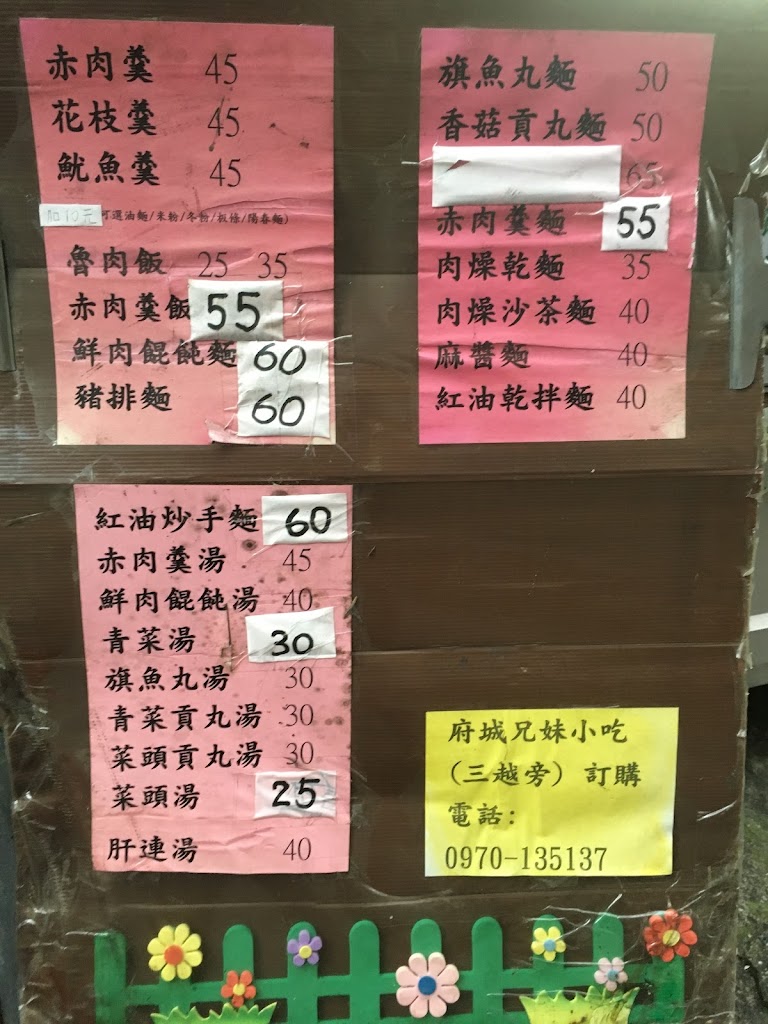 赤肉羹 45
花枝羹 45
魷魚羹 45
加10元 可選油麵/米粉/冬粉/粄條/陽春麵)
魯肉飯 25 35
赤肉羹飯 55
鮮肉餛飩麵 60
豬排麵 60
旗魚丸麵 50
香菇貢丸麵 50
65
赤肉羹麵 55
肉燥乾麵 35
肉燥沙茶麵 40
麻醬麵 40
紅油乾拌麵 40
紅油炒手麵 60
赤肉羹湯 45
鮮肉餛飩湯 40
青菜湯 30
旗魚丸湯 30
青菜貢丸湯 30
菜頭貢丸湯 30
菜頭湯 25
肝連湯 40
府城兄妹小吃
(三越旁) 訂購
電話:
0970-135137